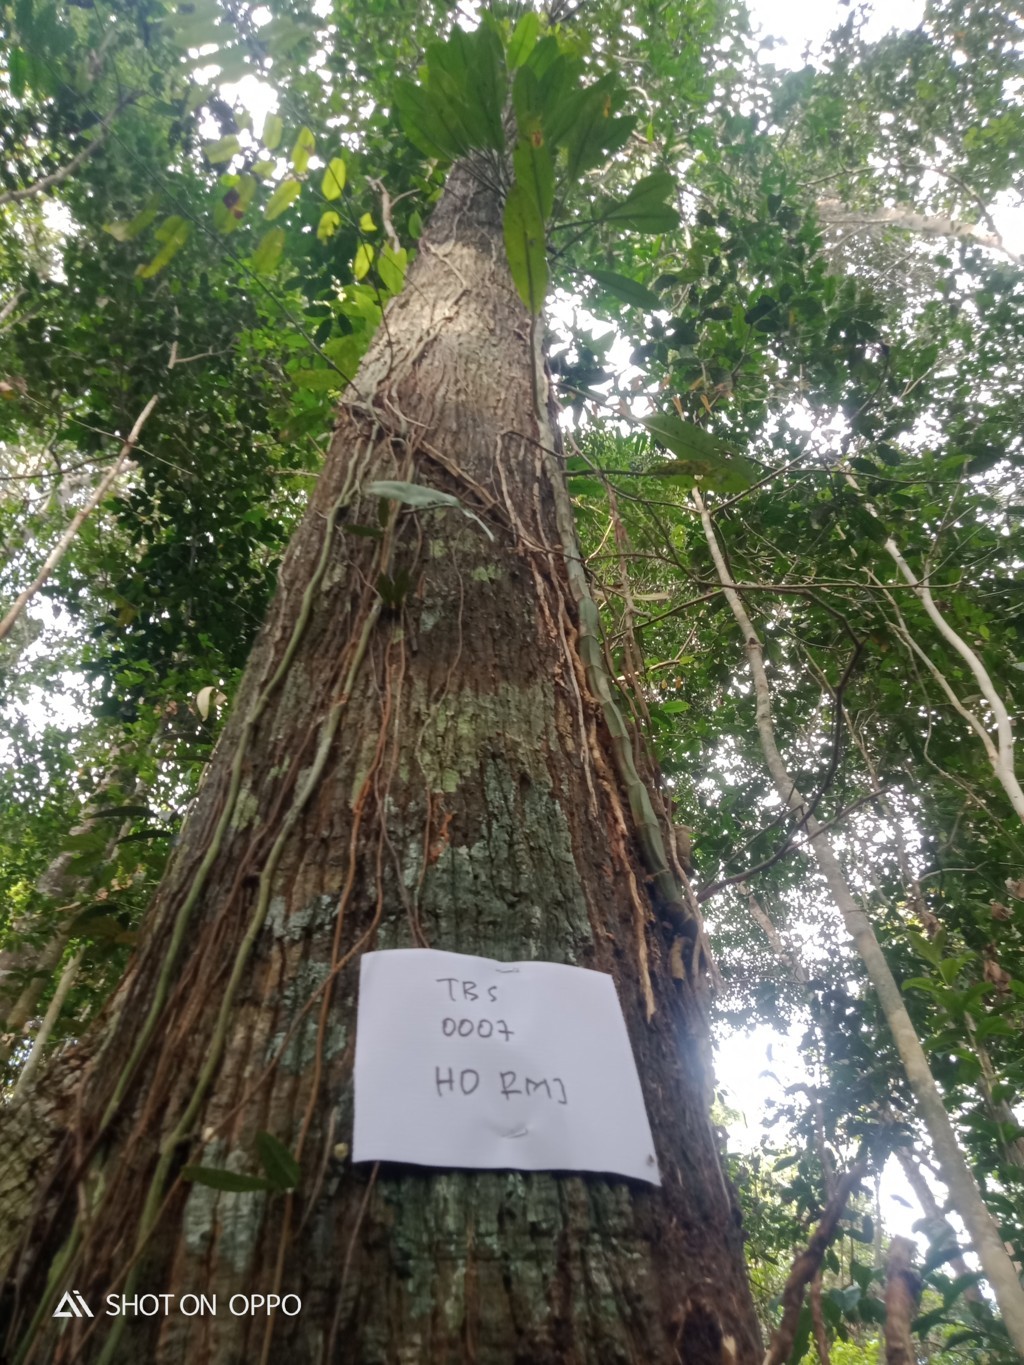 TBS
0007
HO RMJ
SHOT ON OPPO